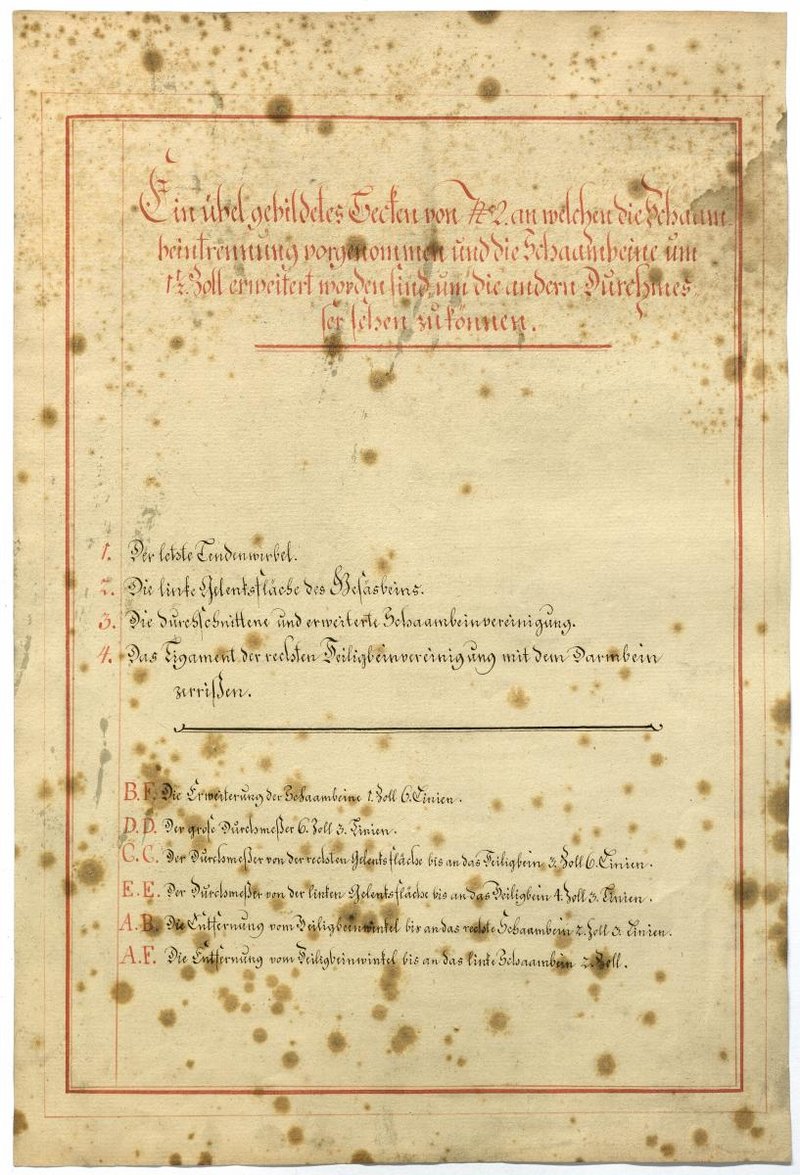 Ein übel gebildetes Becken von № 2. an welchen die Schaam-
beintrennung vorgenommen und die Schaambeine um
1½. Zoll erweitert worden sind, um die andern Durchmes-
ser sehen zukönnen.
1. Der letzte Lendenwirbel.
2. Die linke Gelenksfläche des Gesäsbeins.
3. Die durchschnittene und erweiterte Schaambeinvereinigung.
4. Das Ligament der rechten Heiligbeinvereinigung mit dem Darmbein
zerrißen.
B. F. Die Erweiterung der Schaambeine 1. Zoll 6. Linien.
D. D. Der große Durchmeßer 6. Zoll 3. Linien.
C. C. Der Durchmeßer von der rechten Gelenksfläche bis an das Heiligbein 3. Zoll 6. Linien.
E. E. Der Durchmeßer von der linken Gelenksfläche bis an das Heiligbein 4. Zoll 3. Linien.
A. B. Die Entfernung vom Heiligbeinwinkel bis an das rechte Schaambein 2. Zoll 3. Linien.
A. F. Die Entfernung vom Heiligbeinwinkel bis an das linke Schaambein 2. Zoll.